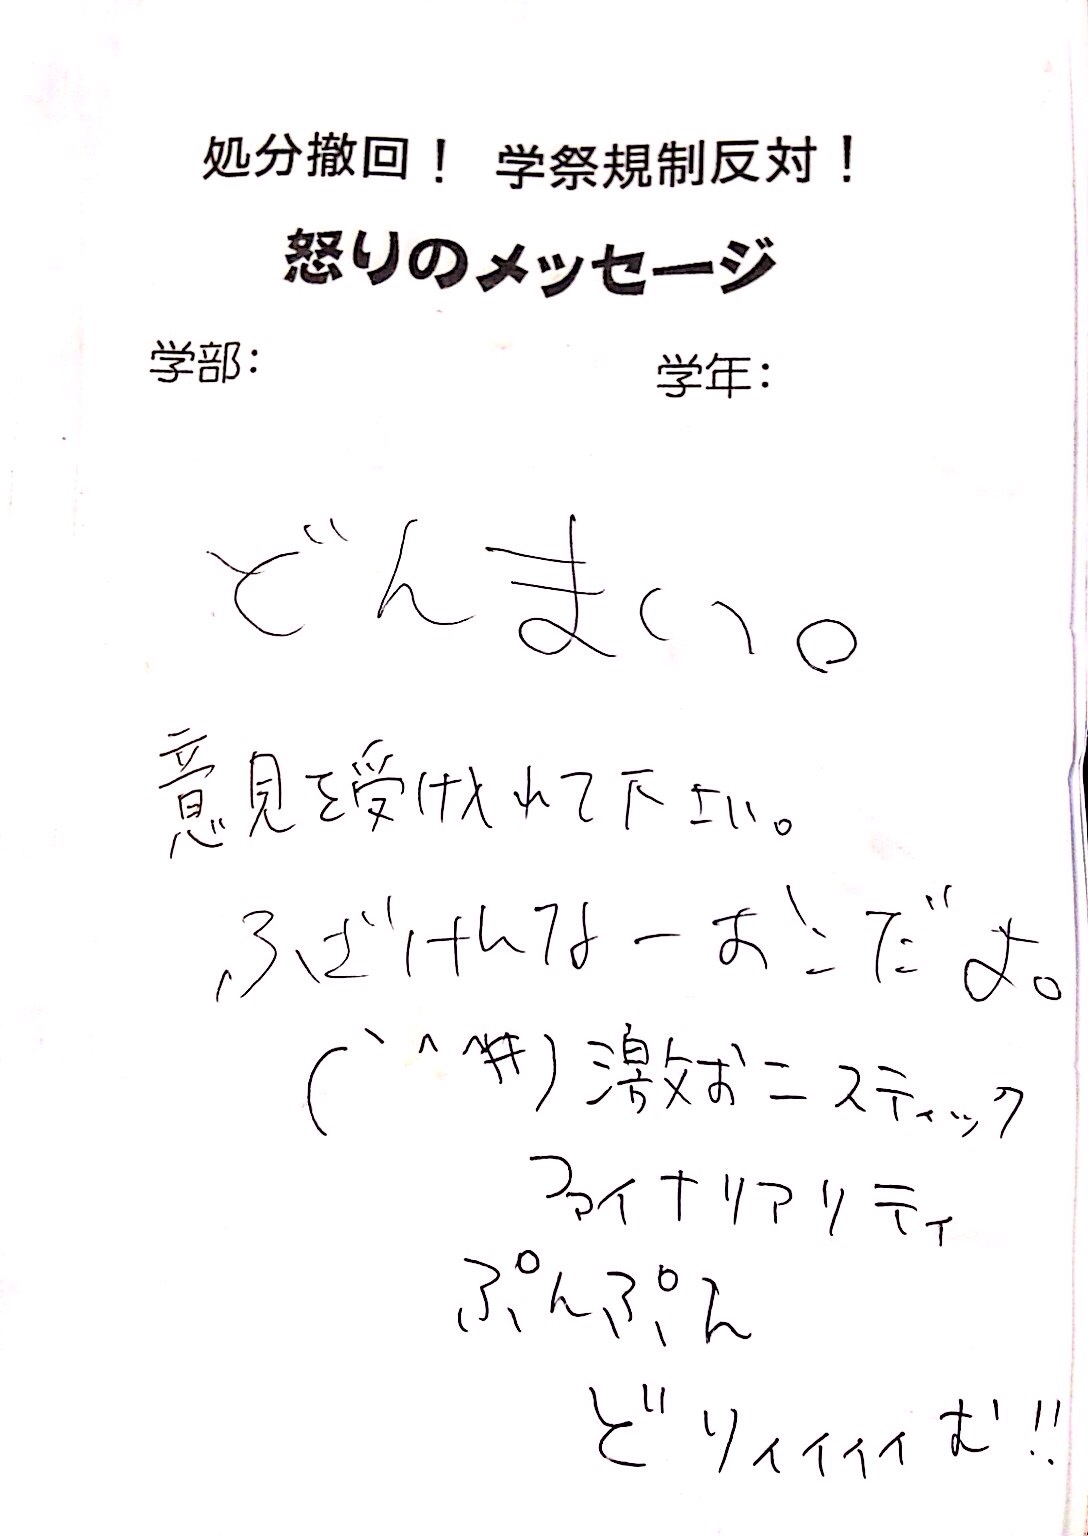 処分撤回！ 学祭規制反対！
怒りのメッセージ
学部： 学年：
どんまい。
意見を受け入れて下さい。
ふざけんなーおこだよ。
(｀^´#) 激おこスティック
ファイナリアリティ
ぷんぷん
どりィィィィむ!!